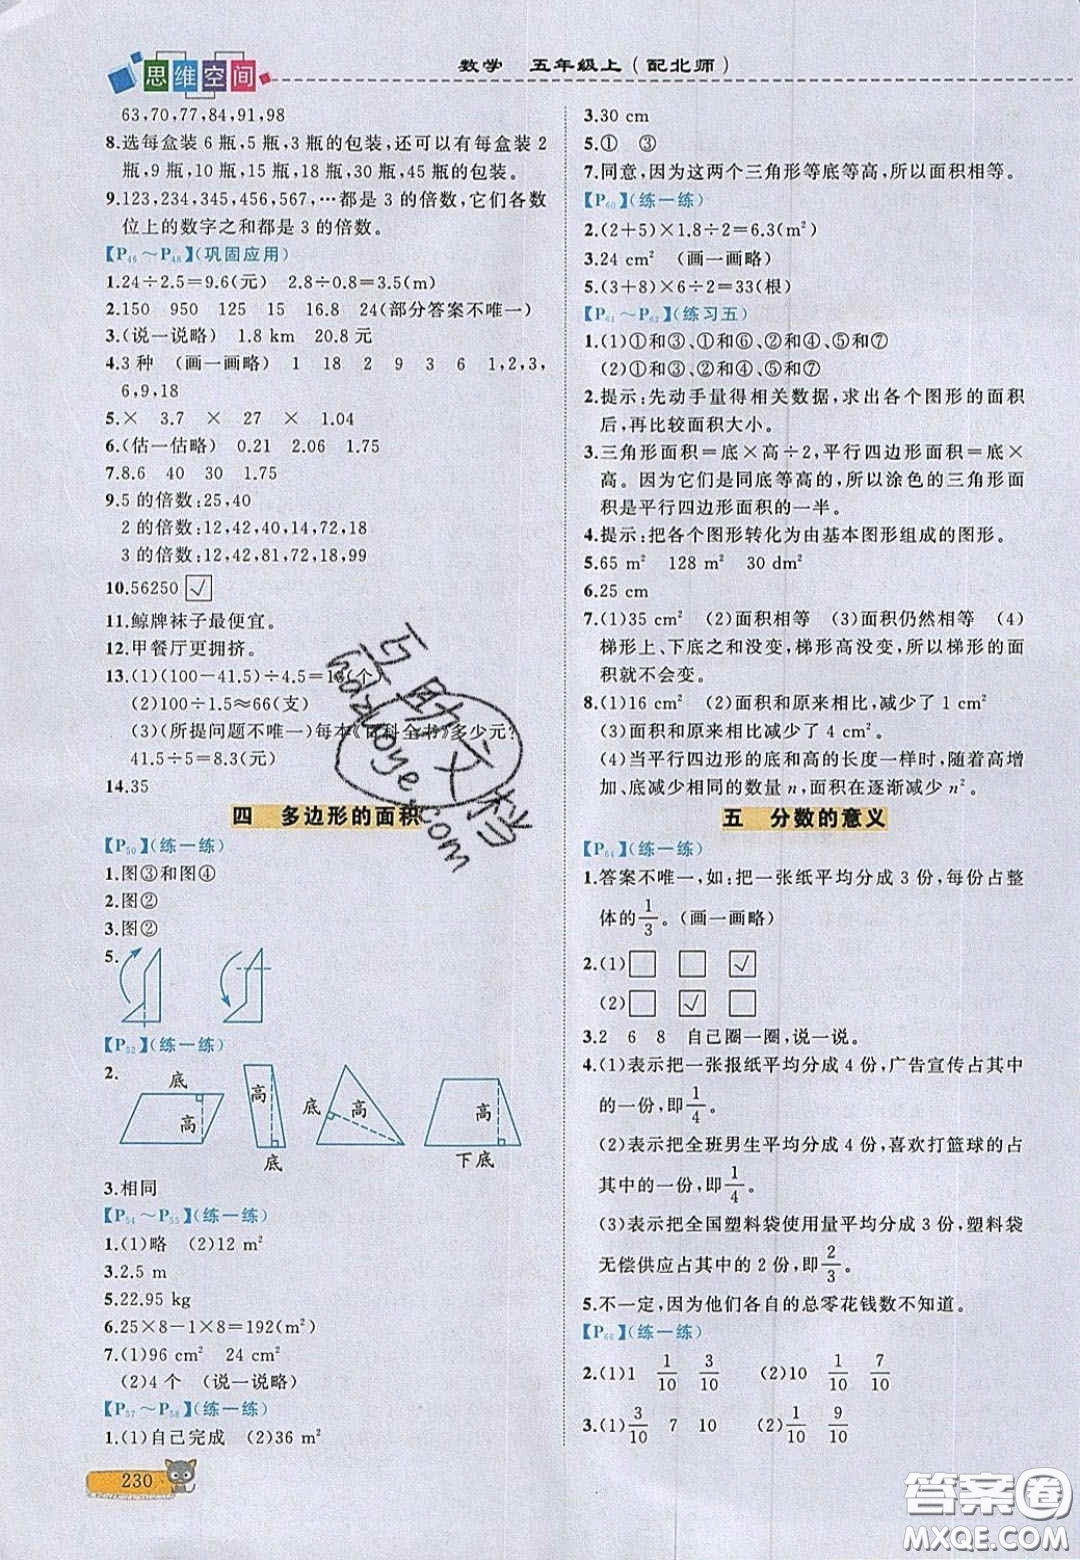 思维空间
数学 五年级上(配北师)
63,70,77,84,91,98
8.选每盒装 6 瓶,5 瓶,3 瓶的包装,还可以有每盒装 2
瓶,9瓶,10瓶,15瓶,18瓶,30瓶,45瓶的包装。
9.123,234,345,456,567,…都是 3 的倍数,它们各数
位上的数字之和都是 3 的倍数。
【P46～P48】(巩固应用)
1.24÷2.5=9.6(元) 2.8÷0.8=3.5(m)
2.150 950 125 15 16.8 24(部分答案不唯一)
3.(说一说略) 1.8 km 20.8 元
4.3 种 (画一画略) 1 18 2 9 3 6 1,2,3,
6,9,18
5.× 3.7 × 27 × 1.04
6.(估一估略) 0.21 2.06 1.75
7.8.6 40 30 1.75
9.5 的倍数:25,40
2 的倍数:12,42,40,14,72,18
3 的倍数:12,42,81,72,18,99
10.56250 √
11.鲸牌袜子最便宜。
12.甲餐厅更拥挤。
13.(1)(100-41.5)÷4.5=13(个)
(2)100÷1.5≈66(支)
(3)(所提问题不唯一)每本《百科全书》多少元?
41.5÷5=8.3(元)
14.35
四 多边形的面积
【P50】(练一练)
1.图③和图④
2.图②
3.图②
5.
【P52】(练一练)
2.
底 高 高 底 底 高 高 下底
3.相同
【P54～P55】(练一练)
1.(1)略 (2)12 m²
3.2.5 m
5.22.95 kg
6.25×8-1×8=192(m²)
7.(1)96 cm² 24 cm²
(2)4 个 (说一说略)
【P57～P58】(练一练)
1.(1)自己完成 (2)36 m²
230
3.30 cm
5.① ③
7.同意,因为这两个三角形等底等高,所以面积相等。
【P60】(练一练)
2.(2+5)×1.8÷2=6.3(m²)
3.24 cm² (画一画略)
5.(3+8)×6÷2=33(根)
【P61～P62】(练习五)
1.(1)①和③、①和⑥、②和④、⑤和⑦
(2)①和③、②和④、⑤和⑦
2.提示:先动手量得相关数据,求出各个图形的面积
后,再比较面积大小。
3.三角形面积=底×高÷2,平行四边形面积=底×
高。因为它们是同底等高的,所以涂色的三角形面
积是平行四边形面积的一半。
4.提示:把各个图形转化为由基本图形组成的图形。
5.65 m² 128 m² 30 dm²
6.25 cm
7.(1)35 cm² (2)面积相等 (3)面积仍然相等 (4)
梯形上、下底之和没变,梯形高没变,所以梯形的面
积就不会变。
8.(1)16 cm² (2)面积和原来相比,减少了 1 cm²
(3)面积和原来相比减少了 4 cm²。
(4)当平行四边形的底和高的长度一样时,随着高增
加、底减少相同的数量 n,面积在逐渐减少 n²。
五 分数的意义
【P64】(练一练)
1.答案不唯一,如:把一张纸平均分成 3 份,每份占整
体的1/3。(画一画略)
2.(1)□ □ √
(2)□ √ □
3.2 6 8 自己圈一圈,说一说。
4.(1)表示把一张报纸平均分成 4 份,广告宣传占其中
的一份,即1/4。
(2)表示把全班男生平均分成 4 份,喜欢打篮球的占
其中的一份,即1/4。
(3)表示把全国塑料袋使用量平均分成 3 份,塑料袋
无偿供应占其中的 2 份,即2/3。
5.不一定,因为他们各自的总零花钱数不知道。
【P66】(练一练)
2.(1)1 1/10 3/10 (2)10 1/10 7/10
3.(1)3/10 7 10 (2)1/10 9/10
互助文档
hdzuoye.com
答案圈
MXQE.COM